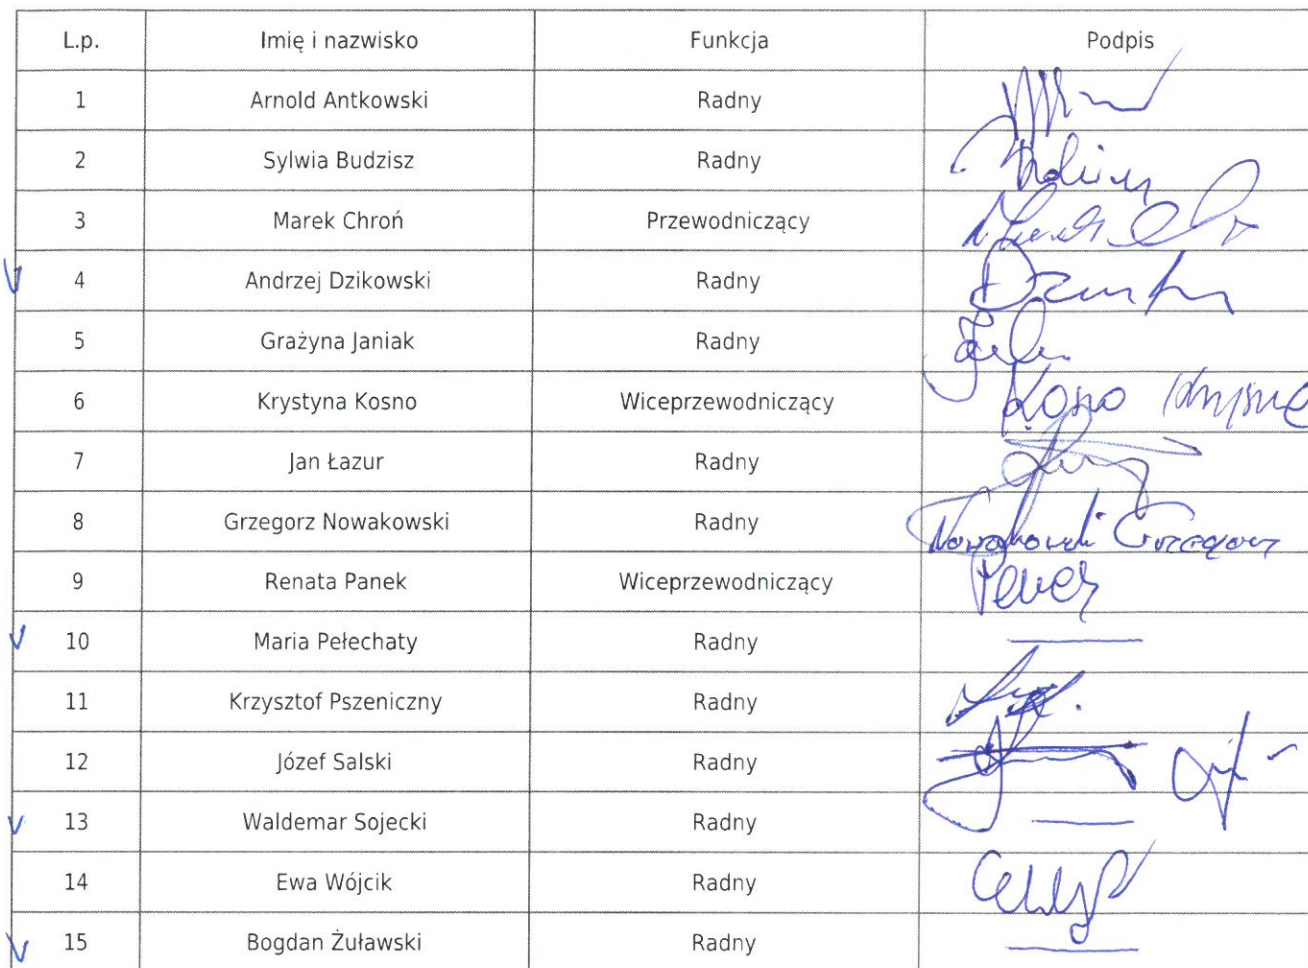 L.p. Imię i nazwisko Funkcja Podpis
1 Arnold Antkowski Radny
2 Sylwia Budzisz Radny
3 Marek Chroń Przewodniczący
4 Andrzej Dzikowski Radny
5 Grażyna Janiak Radny
6 Krystyna Kosno Wiceprzewodniczący Kosno
7 Jan Łazur Radny
8 Grzegorz Nowakowski Radny Nowakowski Grzegorz
9 Renata Panek Wiceprzewodniczący
10 Maria Pełechaty Radny
11 Krzysztof Pszeniczny Radny
12 Józef Salski Radny
13 Waldemar Sojecki Radny
14 Ewa Wójcik Radny
15 Bogdan Żuławski Radny